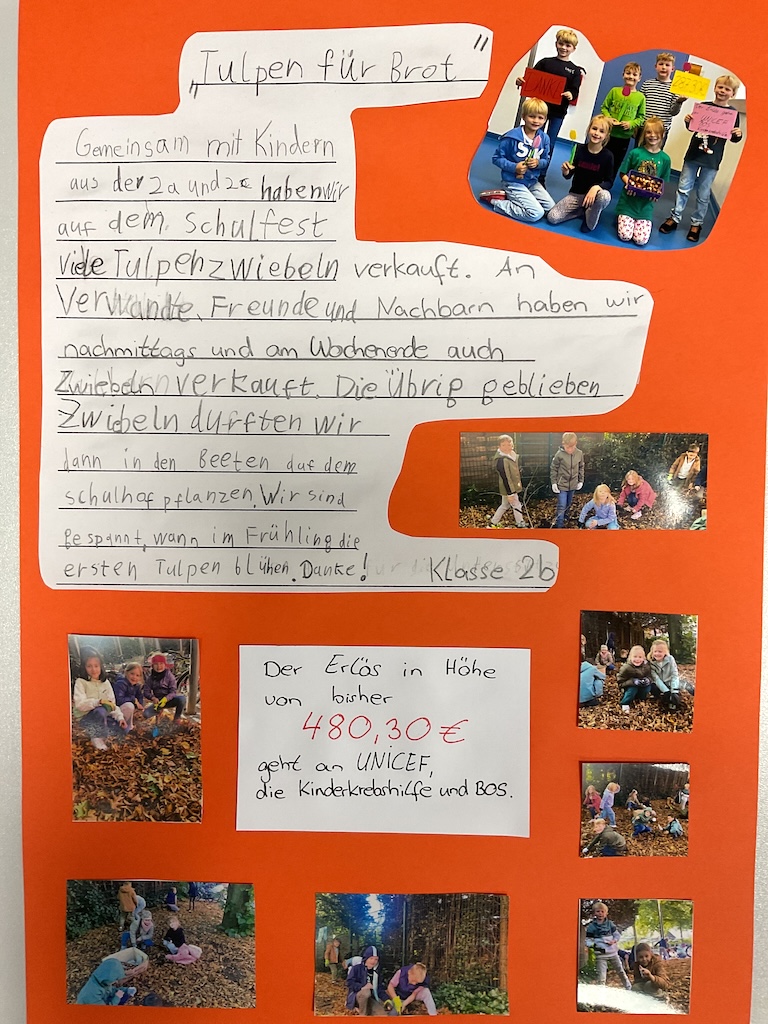 „Tulpen für Brot"
Gemeinsam mit Kindern
aus der 2a und 2c haben wir
auf dem Schulfest
viele Tulpenzwiebeln verkauft. An
Verwandte, Freunde und Nachbarn haben wir
nachmittags und am Wochenende auch
Zwiebeln verkauft. Die Übrig geblieben
Zwiebeln durften wir
dann in den Beeten auf dem
schulhof pflanzen. Wir sind
gespannt, wann im Frühling die
ersten Tulpen blühen. Danke!
Klasse 2b
DANKE
UNICEF
Der Erlös in Höhe
von bisher
480,30 €
geht an UNICEF,
die Kinderkrebshilfe und BOS.